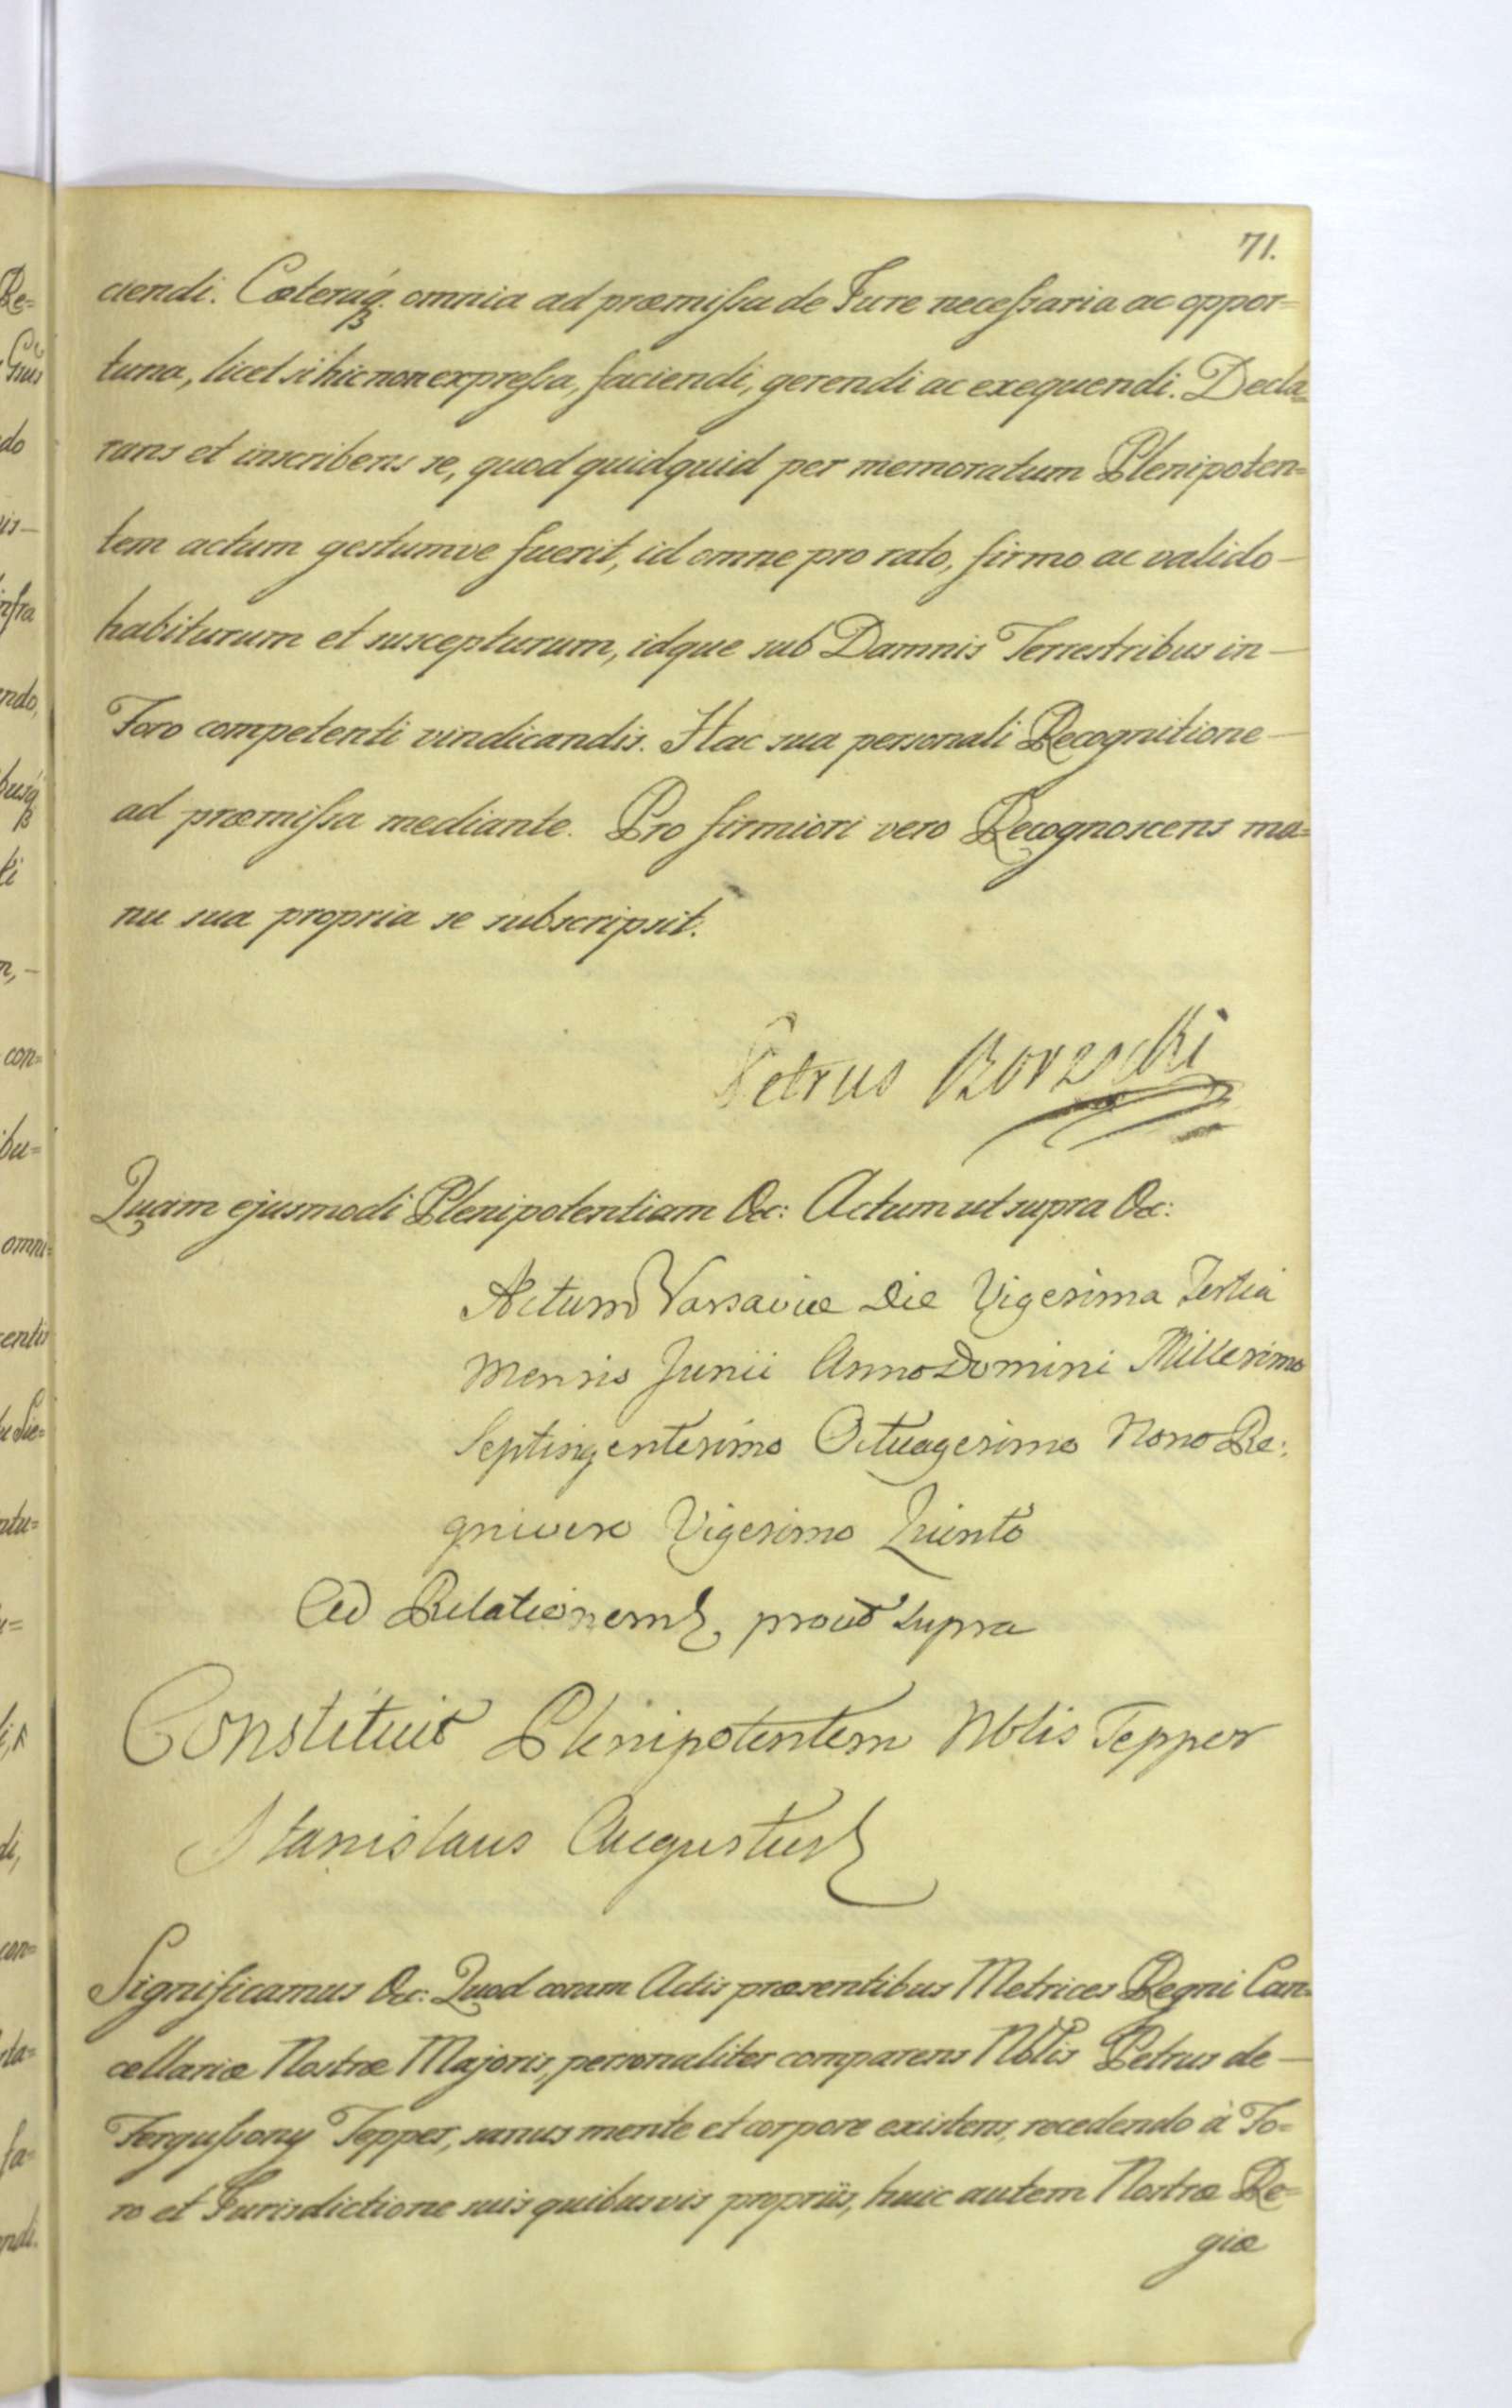 71.
ciendi. Cæteraq₃ omnia ad præmissa de Jure necessaria ac oppor=
tuna, licet si hic non expressa, faciendi, gerendi ac exequendi. Decla=
rans et inscribens se, quod quidquid per memoratum Plenipoten=
tem actum gestumve fuerit, id omne pro rato, firmo ac valido
habiturum et suscepturum, idque sub Damnis Terrestribus in
Foro competenti vindicandis. Hac sua personali Recognitione
ad præmissa mediante. Pro firmiori vero Recognoscens ma=
nu sua propria se subscripsit.
Petrus
Quam ejusmodi Plenipotentiam &c: Actum ut supra &c:
Actum Varsaviæ Die Vigesima Tertia
Mensis Junii Anno Domini Millesimo
Septingentesimo Octuagesimo Nono Re:
gni vero Vigesimo Quinto
Ad Relationem prout supra
Constituit Plenipotentem Nblis Tepper
Stanislaus Augustus
Significamus &c: Quod coram Actis præsentibus Metrices Regni Can=
cellariæ Nostræ Majoris, personaliter comparens Nblis Petrus de
Fergussony Tepper, sanus mente et corpore existens, recedendo à Fo=
ro et Jurisdictione suis quibusvis propriis, huic autem Nostræ Re=
giæ